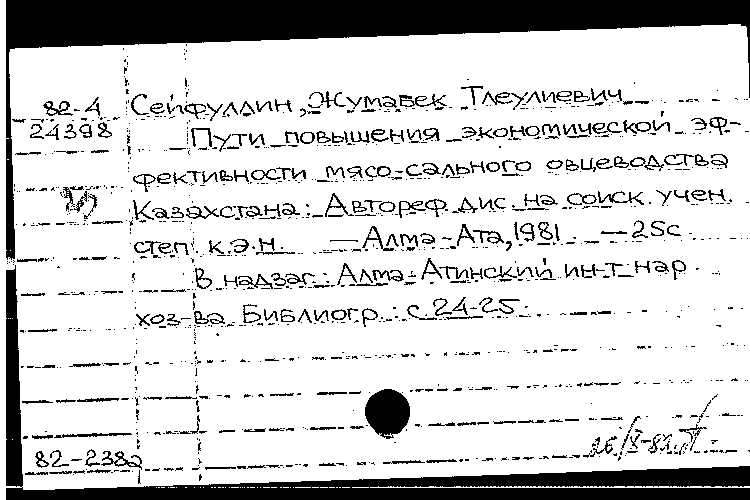 82-4 Сейфуллин, Жумабек Тлеулиевич
24398 Пути повышения экономической эф-
фективности мясо-сального овцеводства
Казахстана: Автореф. дис. на соиск. учен.
степ. к.э.н. — Алма-Ата, 1981. — 25с.
В надзаг.: Алма-Атинский ин-т нар.
хоз-ва Библиогр.: с. 24-25.
82-2382